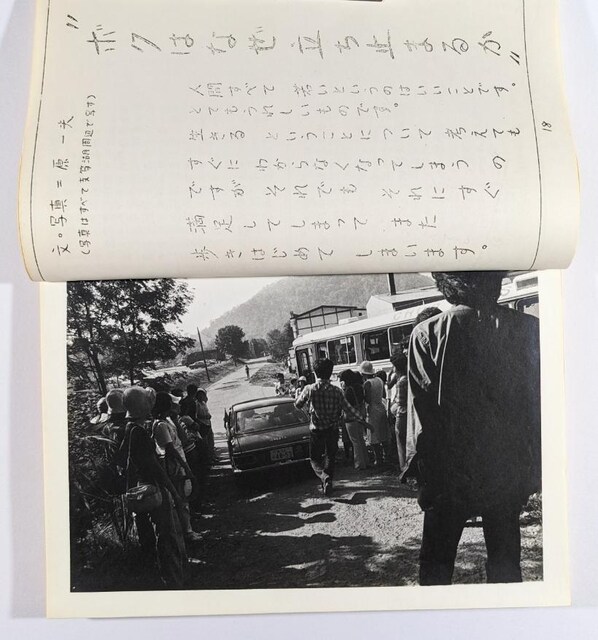 "ボクはなぜ立ち止まるか"
人間すべて 若いというのはいいことです。
とてもうれしいものです。
生きる ということについて 考えても
すぐに わからなくなってしまう の
ですが それでも それに すぐ
満足 してしまって また
歩きはじめて しまいます。
文。写真=原 一夫
18